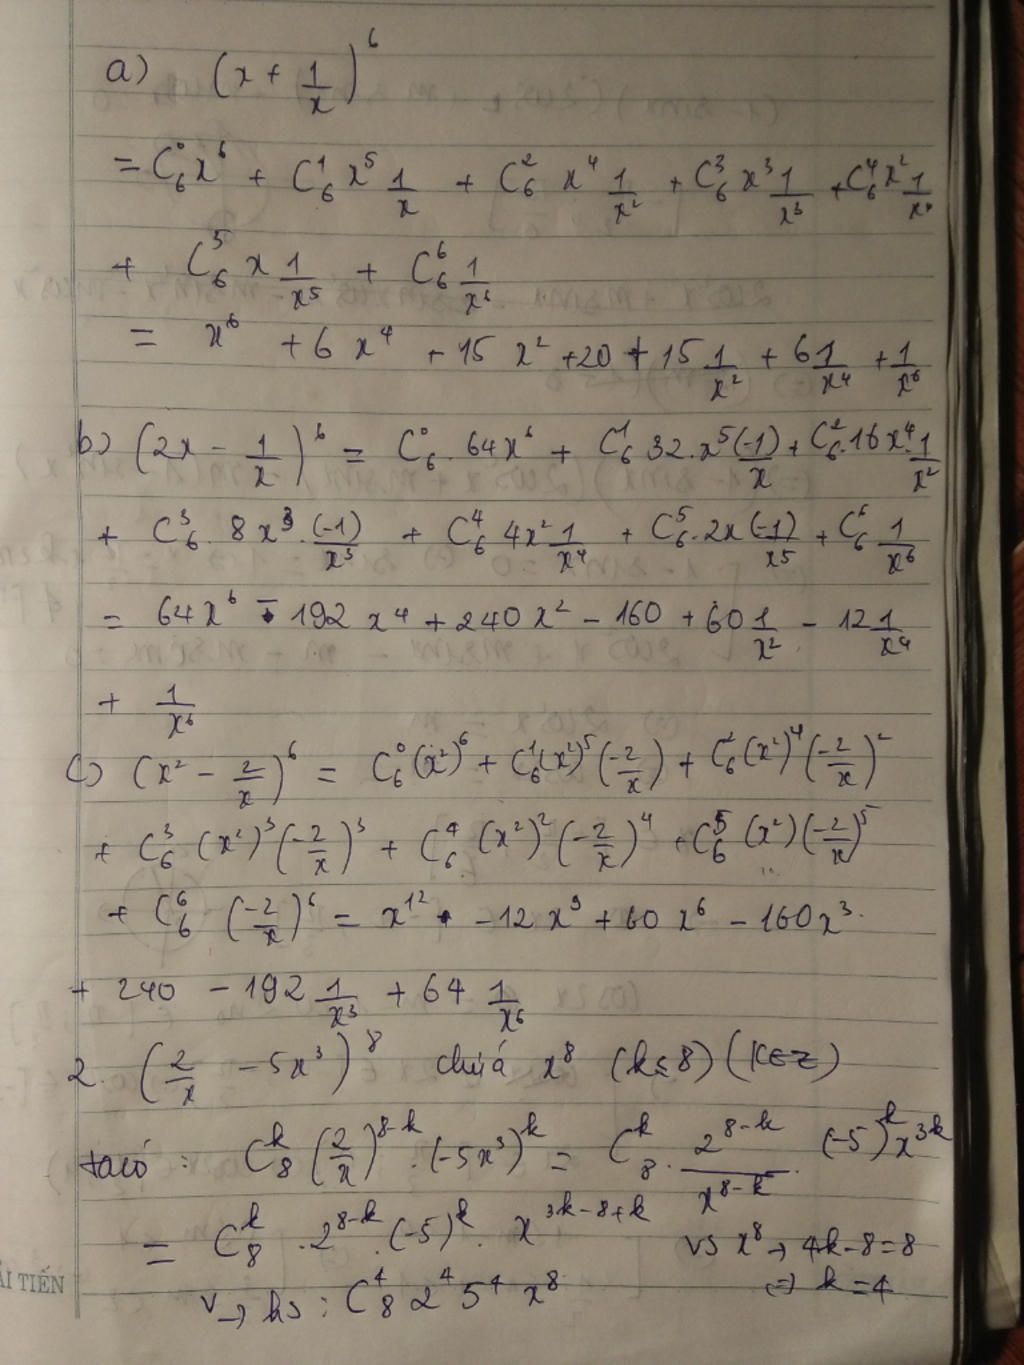 a) (x + 1/x)^6
= C_6^0 x^6 + C_6^1 x^5 1/x + C_6^2 x^4 1/x^2 + C_6^3 x^3 1/x^3 + C_6^4 x^2 1/x^4
+ C_6^5 x 1/x^5 + C_6^6 1/x^6
= x^6 + 6 x^4 + 15 x^2 + 20 + 15 1/x^2 + 6 1/x^4 + 1/x^6
b) (2x - 1/x)^6 = C_6^0 . 64x^6 + C_6^1 32. x^5 (-1)/x + C_6^2 . 16x^4 . 1/x^2
+ C_6^3 . 8x^3 . (-1)/x^3 + C_6^4 4x^2 1/x^4 + C_6^5 . 2x (-1)/x^5 + C_6^6 1/x^6
= 64x^6 - 192 x^4 + 240 x^2 - 160 + 60 1/x^2 - 12 1/x^4
+ 1/x^6
c) (x^2 - 2/x)^6 = C_6^0 (x^2)^6 + C_6^1 (x^2)^5 (-2/x) + C_6^2 (x^2)^4 (-2/x)^2
+ C_6^3 (x^2)^3 (-2/x)^3 + C_6^4 (x^2)^2 (-2/x)^4 + C_6^5 (x^2) (-2/x)^5
+ C_6^6 (-2/x)^6 = x^12 - 12 x^9 + 60 x^6 - 160x^3
+ 240 - 192 1/x^3 + 64 1/x^6
2. (2/x - 5x^3)^8 chứá x^8 (k≤8) (k∈Z)
ta có : C_8^k (2/x)^8-k . (-5x^3)^k = C_8^k . 2^8-k/x^8-k . (-5)^k x^3k
= C_8^k . 2^8-k . (-5)^k . x^3k-8+k vs x^8 → 4k-8=8
⇒ k=4
v → hs : C_8^4 2^4 5^4 x^8
ẢI TIẾN